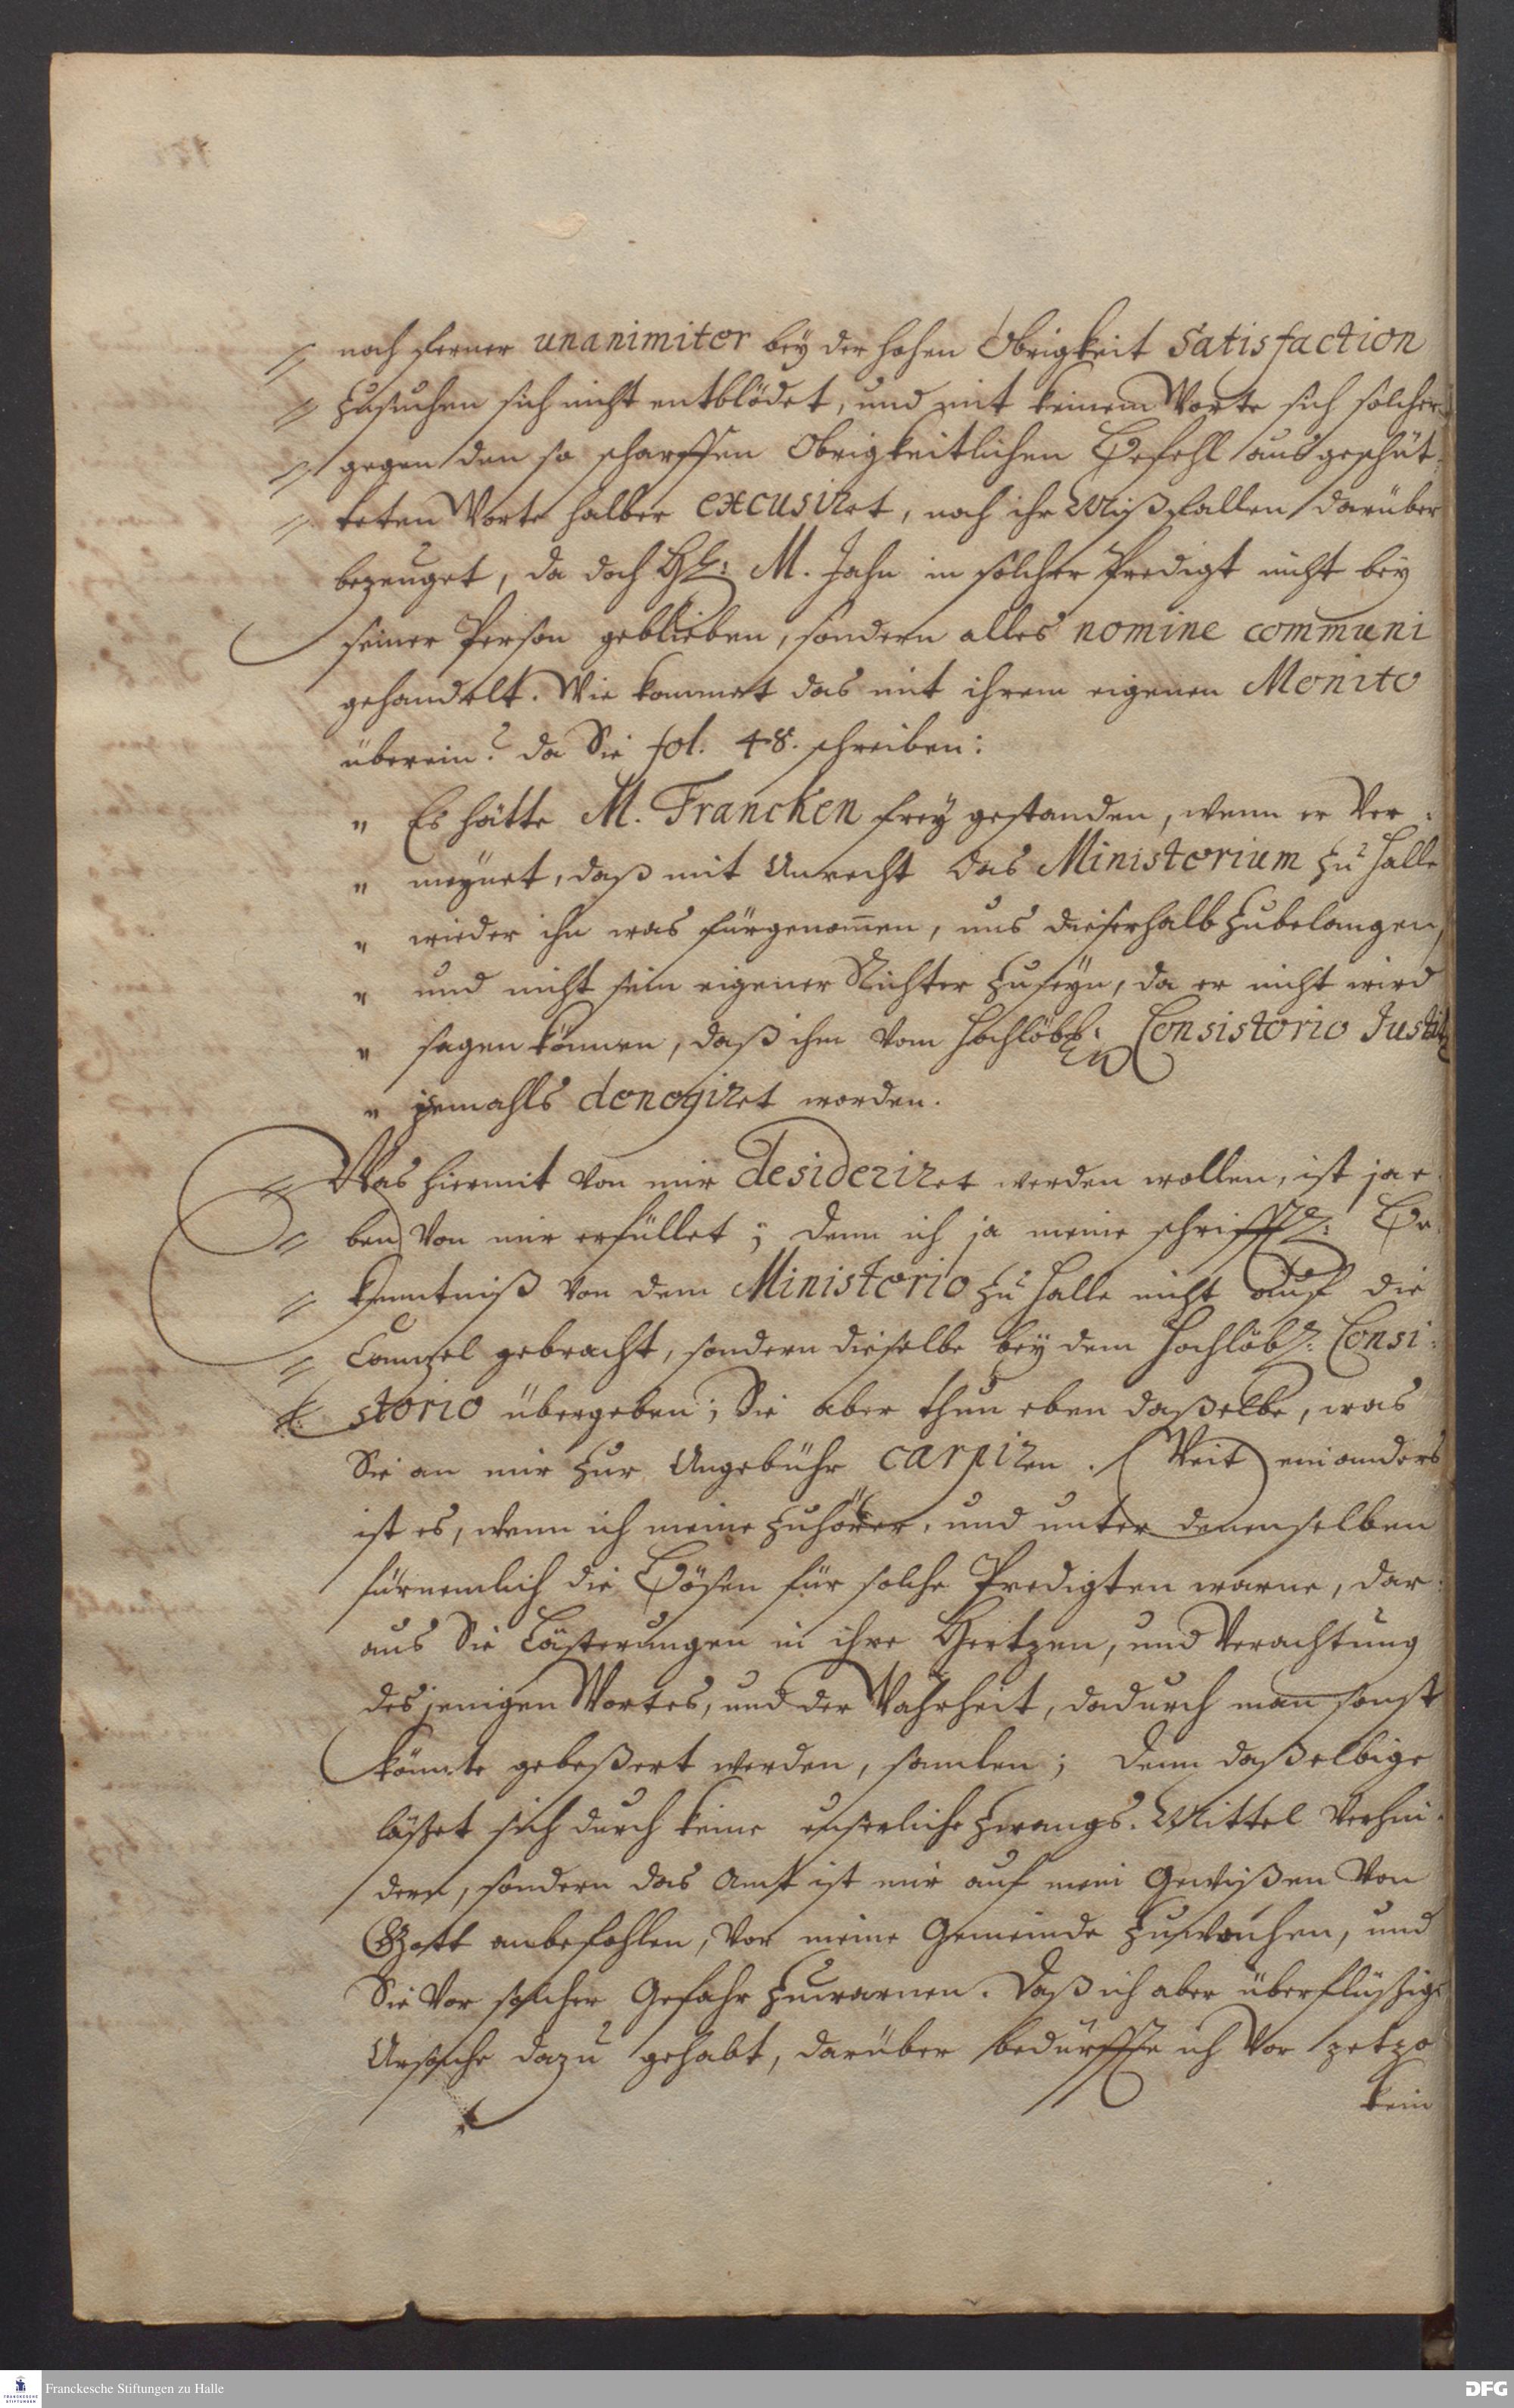 noch ferner unanimiter bey der hohen Obrigkeit Satisfaction
zusuchen sich nicht entblödet, und mit keinem Worte sich solcher
gegen den so scharffen Obrigkeitlichen Befehl ausgeschüt-
teten Worte halber excusiret, noch ihr Mißfallen darüber
bezeuget, da doch M. Jahn in solcher Predigt nicht bey
seiner Person geblieben, sondern alles nomine communi
gehandelt. Wie kommet das mit ihrem eigenen Monito
überein? da Sie fol. 48. schreiben:
" Es hätte M. Francken frey gestanden, wenn er Ver-
" meynet, daß mit Unrecht das Ministerium zu Halle
" wieder ihn was fürgenom̄en, uns dieserhalb zubelangen,
" und nicht sein eigener Richter zuseyn, da er nicht wird
" sagen können, daß ihm vom Hochlöbl: Consistorio Justitz
" jemahls denegiret worden.
Was hiermit von mir desideriret werden wollen, ist ja e-
ben von mir erfüllet; denn ich ja meine schrifftl: Be-
kenntniß von dem Ministerio zu Halle nicht auf die
Cantzel gebracht, sondern dieselbe bey dem Hochlöbl: Consi-
storio übergeben; Sie aber thun eben daßelbe, was
Sie an mir zur Ungebühr carpiren. Weit ein anders
ist es, wenn ich meine Zuhörer, und unter denenselben
fürnemlich die Bösen für solche Predigten warne, dar-
aus Sie Lästerungen in ihre Hertzen, und Verachtung
desjenigen Wortes, und der Wahrheit, dadurch man sonst
könnte gebeßert werden, samlen; denn daßelbige
läßet sich durch keine euserliche Zwangs-Mittel verhin-
dern, sondern das Amt ist mir auf mein Gewißen von
Gott anbefohlen, vor meine Gemeinde zuwachen, und
Sie vor solcher Gefahr zuwarnen. Daß ich aber überflüßige
Ursache dazu gehabt, darüber bedürffte ich vor jetzo
kein
Franckesche Stiftungen zu Halle
DFG